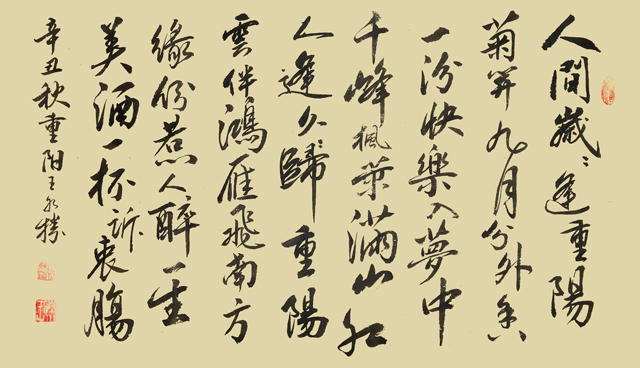 人間歲々逢重陽
菊開九月分外香
一份快樂入夢中
千峰楓葉滿山紅
人逢久々歸重陽
雲伴鴻雁飛南方
緣份惹人醉一生
美酒一杯訴衷腸
辛丑秋重陽王永勝